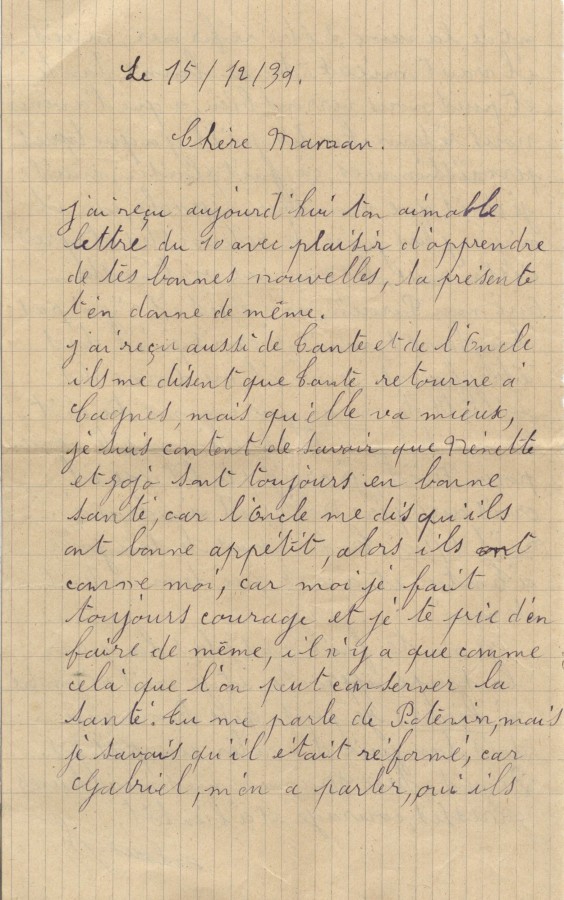 Le 15/12/39.
Chère Maman.
j'ai reçu aujourd'hui ton aimable
lettre du 10 avec plaisir d'apprendre
de tes bonnes nouvelles, la présente
t'en donne de même.
j'ai reçu aussi de Tante et de l'Oncle
ils me disent que Tante retourne à
Cagnes, mais qu'elle va mieux,
je suis content de savoir que Nénette
et jojo sont toujours en bonne
santé, car l'Oncle me dis qu'ils
ont bonne appétit, alors ils ont
comme moi, car moi je fait
toujours courage et je te prie d'en
faire de même, il n'y a que comme
celà que l'on peut conserver la
santé. Tu me parle de Poténin, mais
je savais qu'il était réformé, car
Gabriel, m'en a parler, oui ils